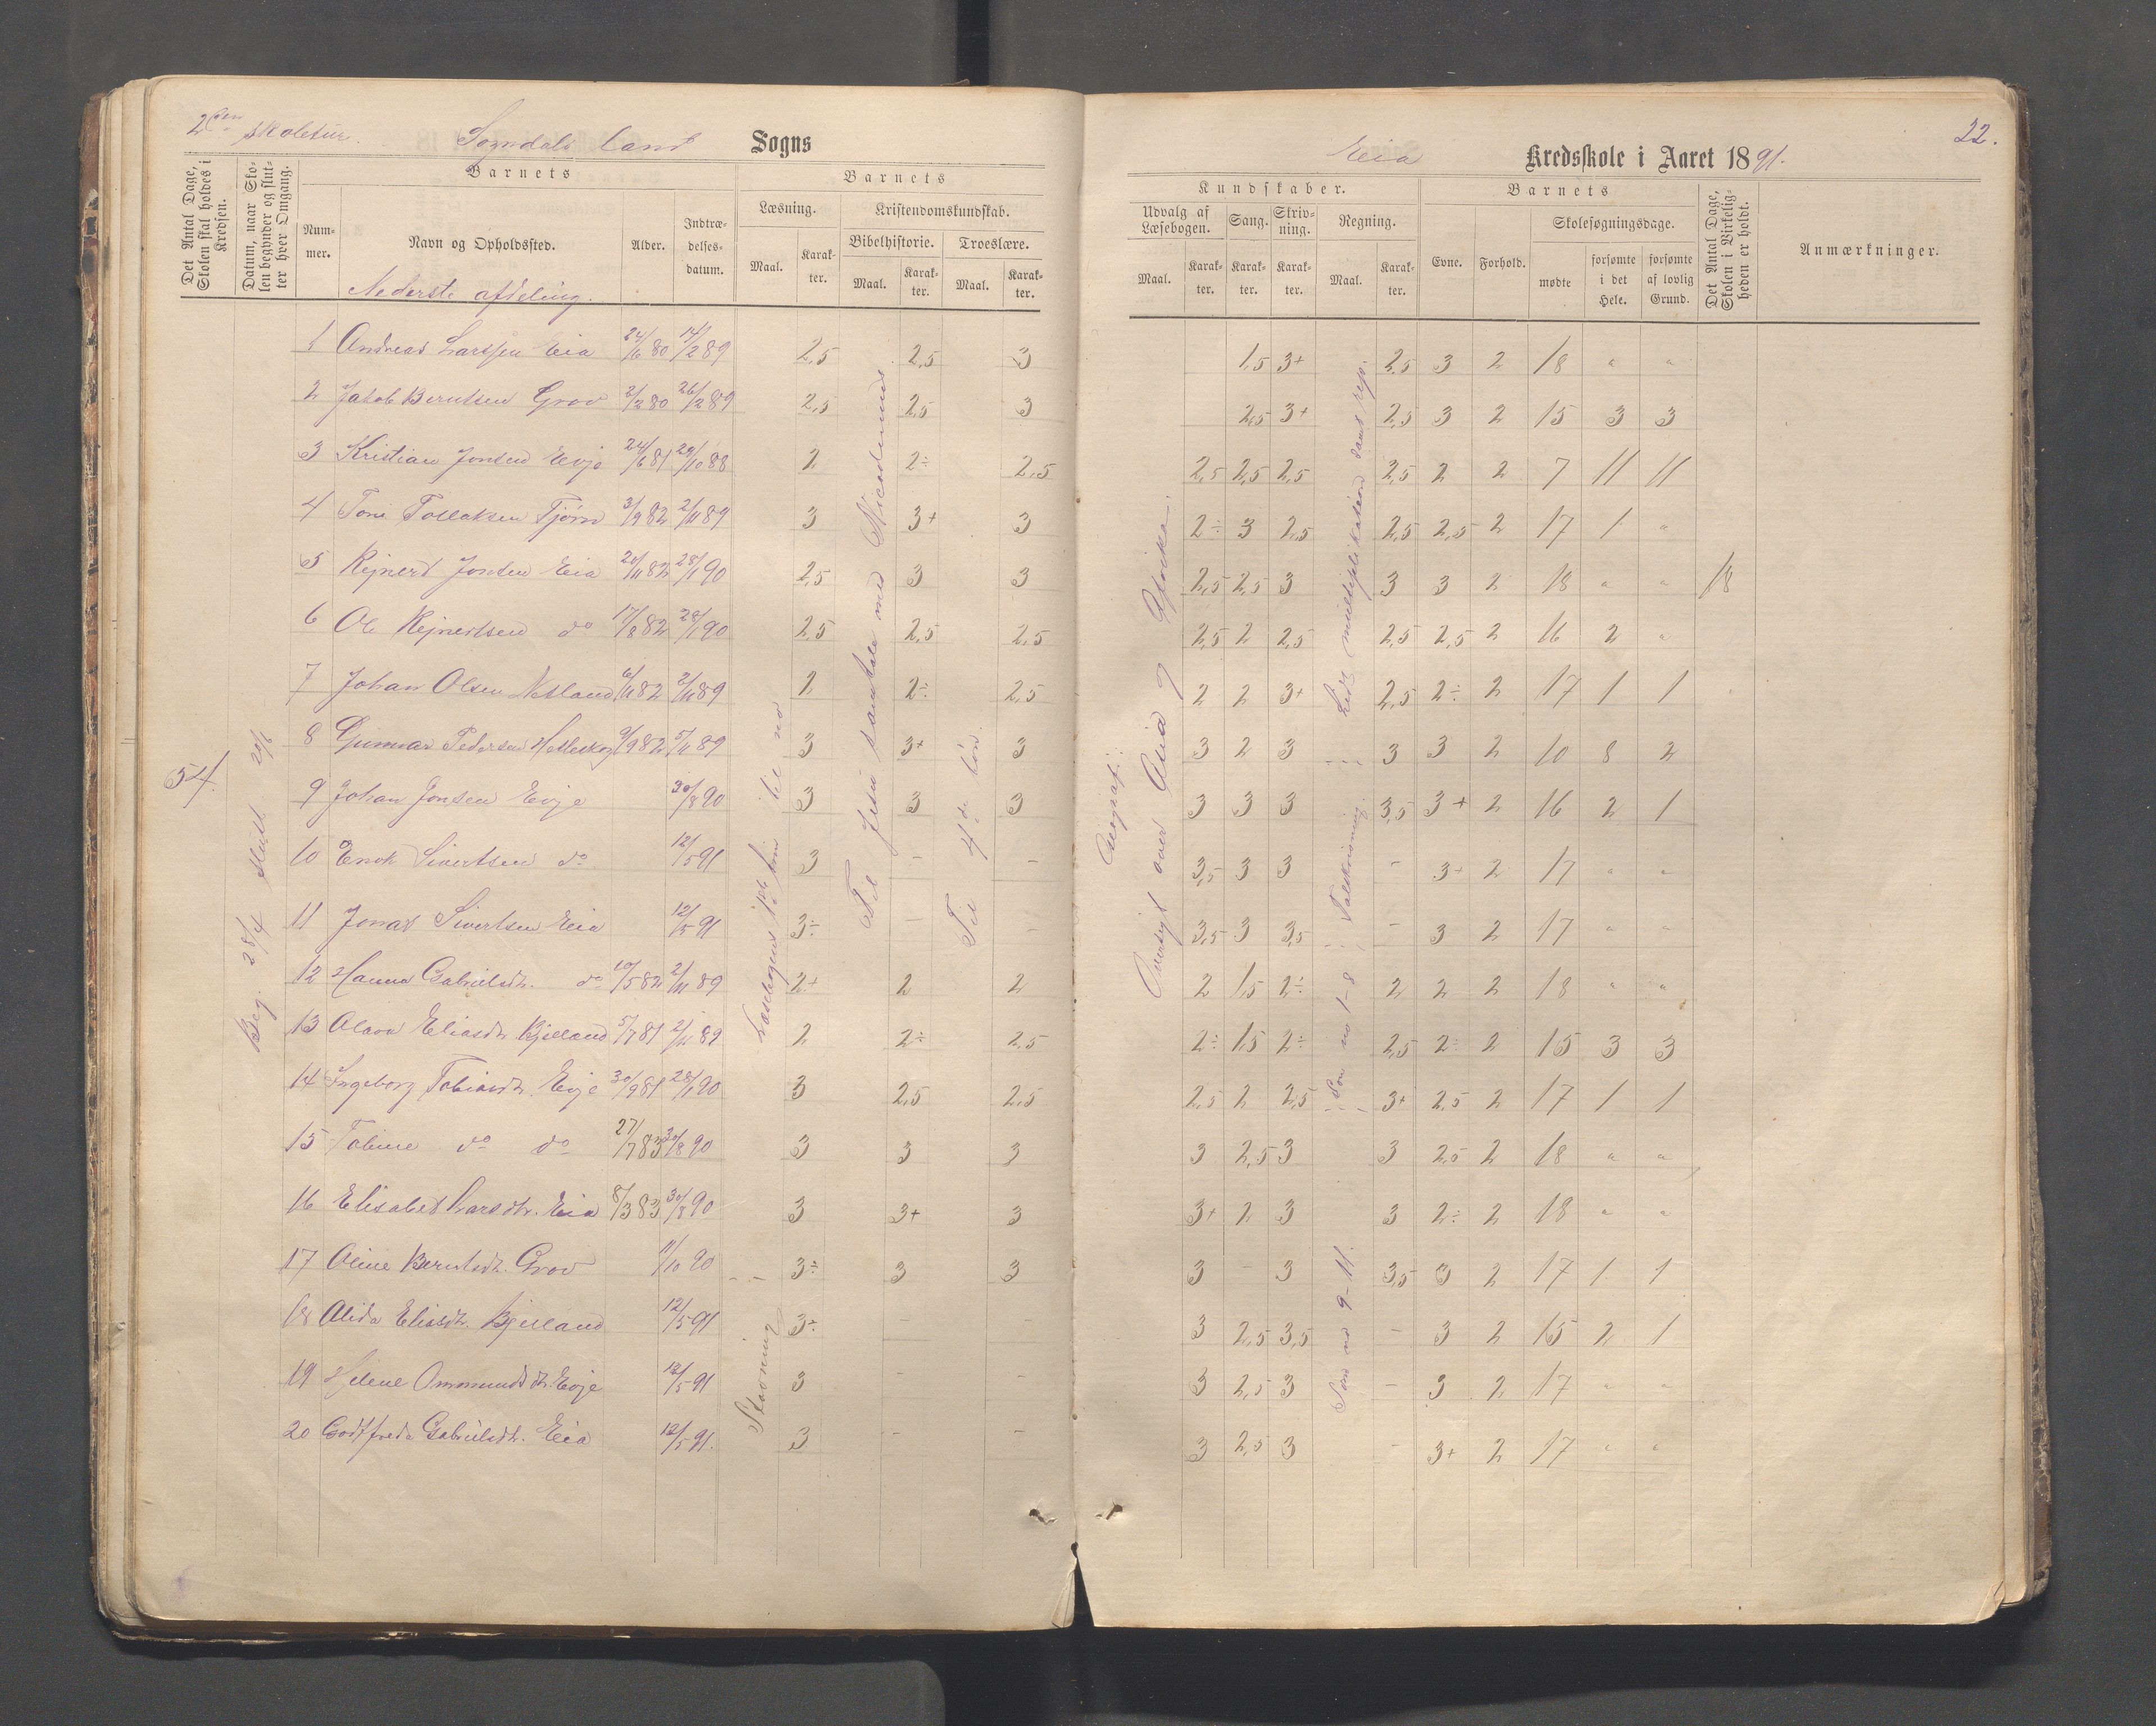 2den skoletur. Sogndals land Sogns
Eia Kredsskole i Aaret 1891.
22.
Det Antal Dage, Skolen skal holdes i Kredsen.
Datum, naar Skolen begynder og slutter hver Omgang.
Barnets
Nummer.
Navn og Opholdssted.
Alder.
Indtrædelsesdatum.
Barnets
Læsning.
Maal.
Karakter.
Kristendomskundskab.
Bibelhistorie.
Maal.
Karakter.
Troeslære.
Maal.
Karakter.
Kundskaber.
Udvalg af Læsebogen.
Maal.
Karakter.
Sang.
Karakter.
Skrivning.
Karakter.
Regning.
Maal.
Karakter.
Barnets
Evne.
Forhold.
Skolesøgningsdage.
mødte
forsømte i det Hele.
forsømte af lovlig Grund.
Det Antal Dage, Skolen i Virkeligheden er holdt.
Anmærkninger.
Nederste afdeling.
1 Andreas Larssen Eia 24/6 80 14/2 89 2,5 2,5 3 1,5 3+ 2,5 3 2 18 " "
2 Jakob Berntsen Grov 2/2 80 26/2 89 2,5 2,5 3 2,5 3+ 2,5 3 2 15 3 3
3 Kristian Jonsen Evje 24/6 81 29/10 88 2 2÷ 2,5 2,5 2,5 2,5 2,5 2 2 7 11 11
4 Tone Tollaksen Tjørn 3/9 82 2/11 89 3 3+ 3 2÷ 3 2,5 2,5 2,5 2 17 1 "
5 Rejnert Jonsen Eia 20/11 82 28/1 90 2,5 3 3 2,5 2,5 3 3 3 2 18 " " 18
6 Ole Rejnertsen do 17/8 82 28/1 90 2,5 2,5 2,5 2,5 2 2,5 2,5 2,5 2 16 2 "
7 Johan Olsen Netland 6/11 82 2/11 89 2 2÷ 2,5 2 2 3+ 2,5 2÷ 2 17 1 1
8 Gunnar Pedersen Hetleskog 9/9 82 5/11 89 3 3+ 3 3 2 3 3 3 2 10 8 2
9 Johan Jonsen Evje 30/8 90 3 3 3 3 3 3 3,5 3+ 2 16 2 1
10 Enok Sivertsen do 12/5 91 3 - - 3,5 3 3 - 3+ 2 17 " "
11 Jonas Sivertsen Eia 12/5 91 3÷ - - 3,5 3 3,5 - 3 2 17 " "
12 Hanna Gabrielsdt. do 10/5 82 2/11 89 2+ 2 2 2 1,5 2÷ 2 2 2 18 " "
13 Olava Eliasdt. Bjelland 5/7 81 2/11 89 2 2÷ 2,5 2÷ 1,5 2÷ 2,5 2÷ 2 15 3 3
14 Ingeborg Tobiasdt. Evje 30/9 81 28/1 90 3 2,5 2,5 2,5 2 2,5 3+ 2,5 2 17 1 1
15 Toline do do 27/7 83 30/8 90 3 3 3 3 2,5 3 3 2,5 2 18 " "
16 Elisabet Larsdtr. Eia 8/3 83 30/8 90 3 3+ 3 3+ 2 3 3 2÷ 2 18 " "
17 Oline Berntsdt. Grov 11/10 90 3÷ 3 3 3 - 3 3,5 3 2 17 1 1
18 Alida Eliasdt. Bjelland 12/5 91 3÷ - - 3 2,5 3,5 - 3 2 15 2 1
19 Helene Ommundsdt. Evje 12/5 91 3 - - 3 2,5 3 - 3 2 17 " "
20 Godtfreda Gabrielsdt. Eia 12/5 91. 3 - - 3 2,5 3 - 3+ 2 17 " "
54.
Beg. 28/4 slutt 20/6
Læsebogens 1ste trin
Stavning
Til Jesu samtale med Nicodemus
Til 4de bøn.
Geografi:
Oversigt over Asia og Afrika.
multiplikation samt rep.
Talskrivning.
for no 1-8
for no 9-11.